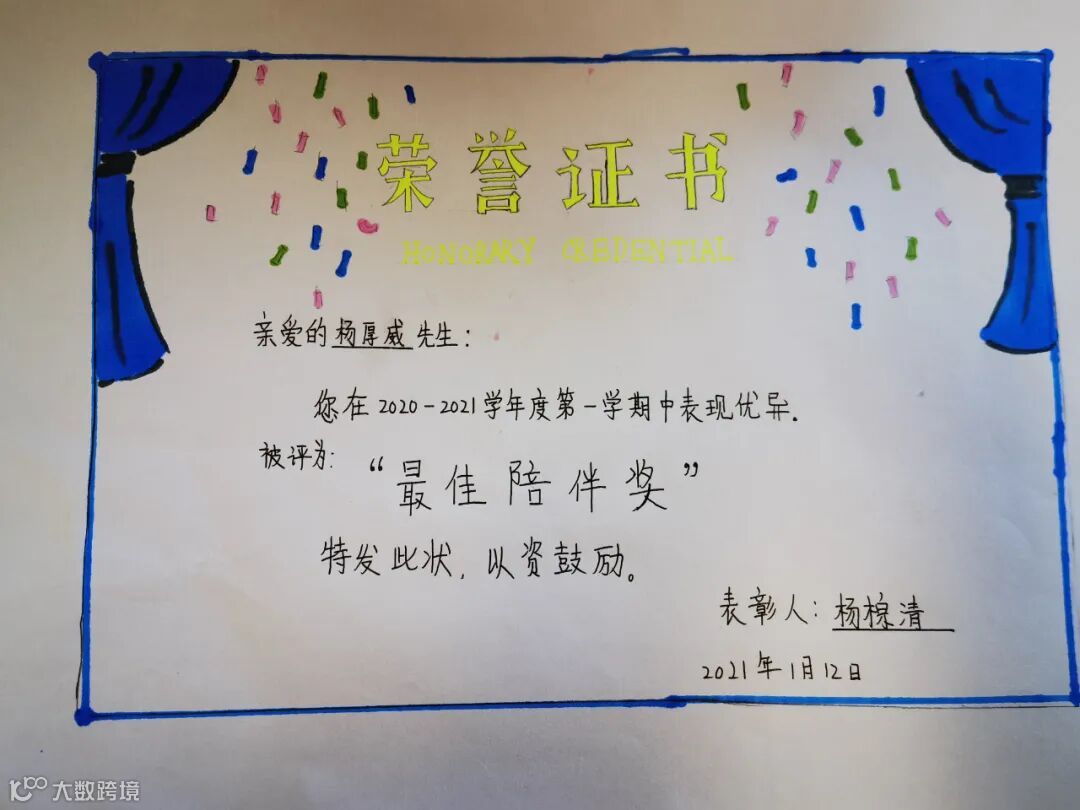 荣誉证书
HONORARY CREDENTIAL
亲爱的杨厚威先生：
您在2020-2021学年度第一学期中表现优异.
被评为：“最佳陪伴奖”
特发此状，以资鼓励。
表彰人：杨椋清
2021年1月12日
大数跨境